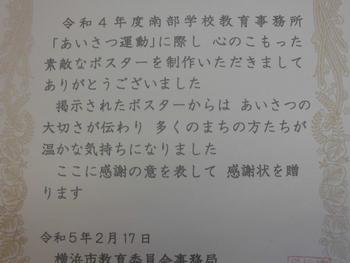 令和４年度南部学校教育事務所
「あいさつ運動」に際し 心のこもった
素敵なポスターを制作いただきまして
ありがとうございました
掲示されたポスターからは あいさつの
大切さが伝わり 多くのまちの方たちが
温かな気持ちになりました
ここに感謝の意を表して 感謝状を贈
ります
令和５年２月１７日
横浜市教育委員会事務局